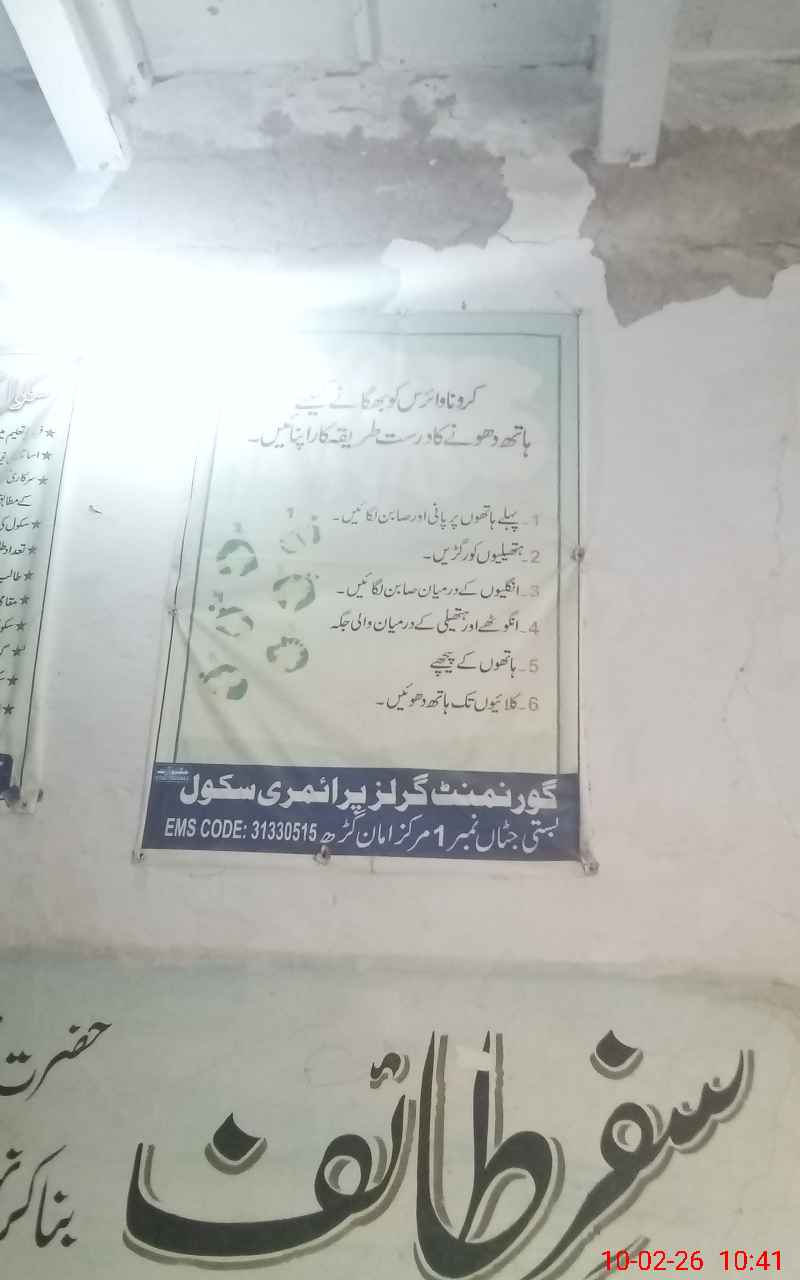 کرونا وائرس کو بھگانے کیلئے
ہاتھ دھونے کا درست طریقہ کار اپنائیں۔
1۔ پہلے ہاتھوں پر پانی اور صابن لگائیں۔
2۔ ہتھیلیوں کو رگڑیں۔
3۔ انگلیوں کے درمیان صابن لگائیں۔
4۔ انگوٹھے اور ہتھیلی کے درمیان والی جگہ
5۔ ہاتھوں کے پیچھے
6۔ کلائیوں تک ہاتھ دھوئیں۔
گورنمنٹ گرلز پرائمری سکول
بستی جٹاں نمبر 1 مرکز امان گڑھ EMS CODE: 31330515
سرکاری
کے مطابق
سکول کی
طالب
سفر طائف
حضرت
بنا کر
10-02-26 10:41